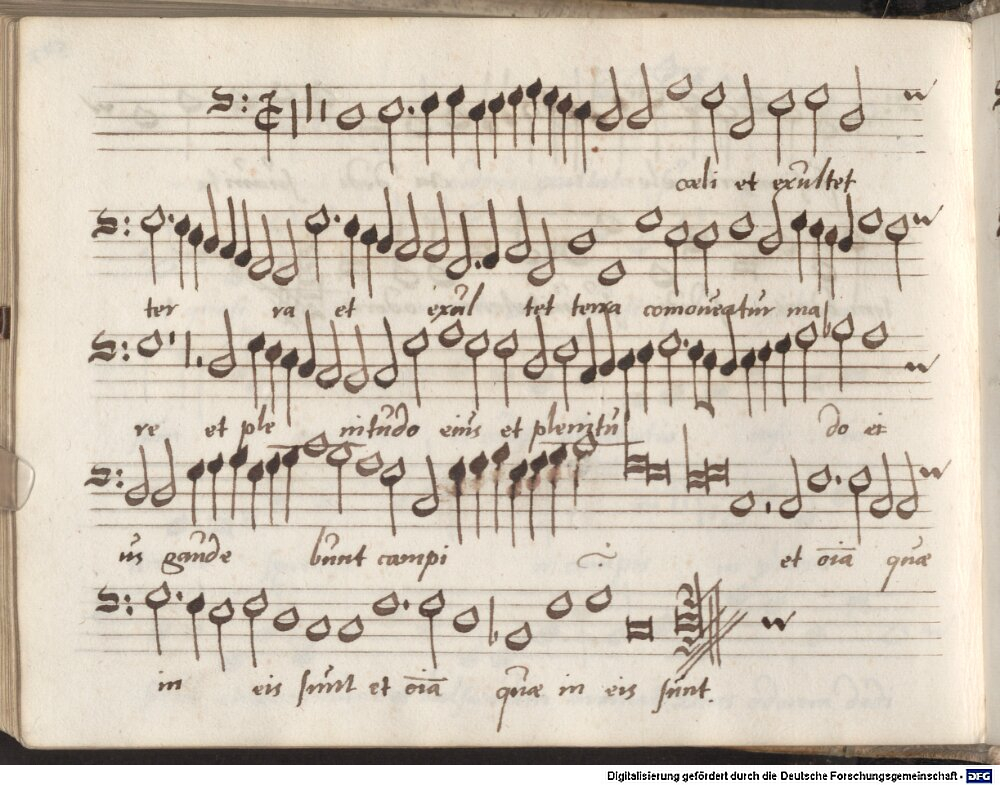 cœli et exultet
ter ra et exul tet terra comoveatur ma
re et ple nitudo eius et plenitu do ei
us gaude bunt campi et oīa quæ
in eis sunt et oīa quæ in eis sunt.
Digitalisierung gefördert durch die Deutsche Forschungsgemeinschaft - DFG